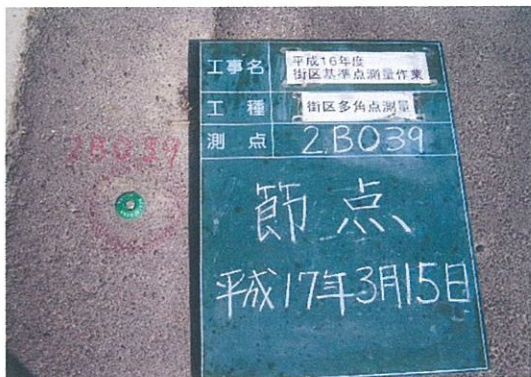 工事名
平成16年度
街区基準点測量作業
工種
街区多角点測量
測点
2B039
2B039
節点
平成17年3月15日